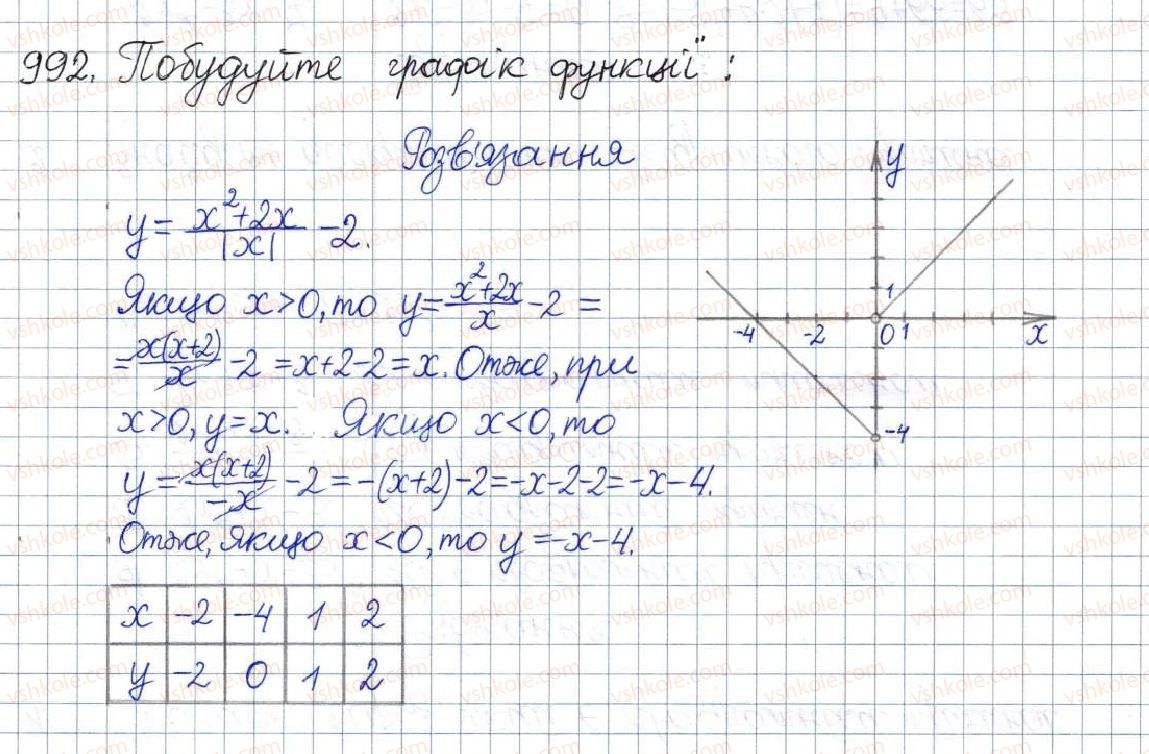 992. Побудуйте графік функції:
Розв'язання
y = (x²+2x)/|x| - 2.
Якщо x>0, то y = (x²+2x)/x - 2 =
= x(x+2)/x - 2 = x+2-2 = x. Отже, при
x>0, y=x. Якщо x<0, то
y = x(x+2)/-x - 2 = -(x+2)-2 = -x-2-2 = -x-4.
Отже, якщо x<0, то y = -x-4.
x -2 -4 1 2
y -2 0 1 2
y
1
-4 -2 0 1 x
-4
vshkole.com